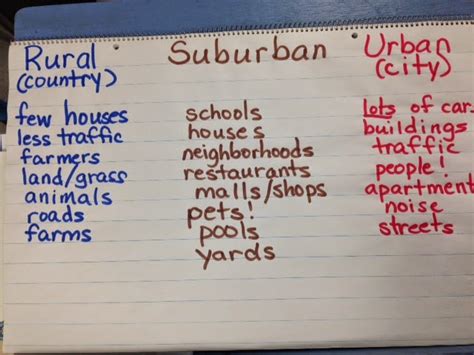 Rural
(country)
few houses
less traffic
farmers
land/grass
animals
roads
farms
Suburban
schools
houses
neighborhoods
restaurants
malls/shops
pets!
pools
yards
Urban
(city)
lots of car
buildings
traffic
people!
apartment
noise
streets